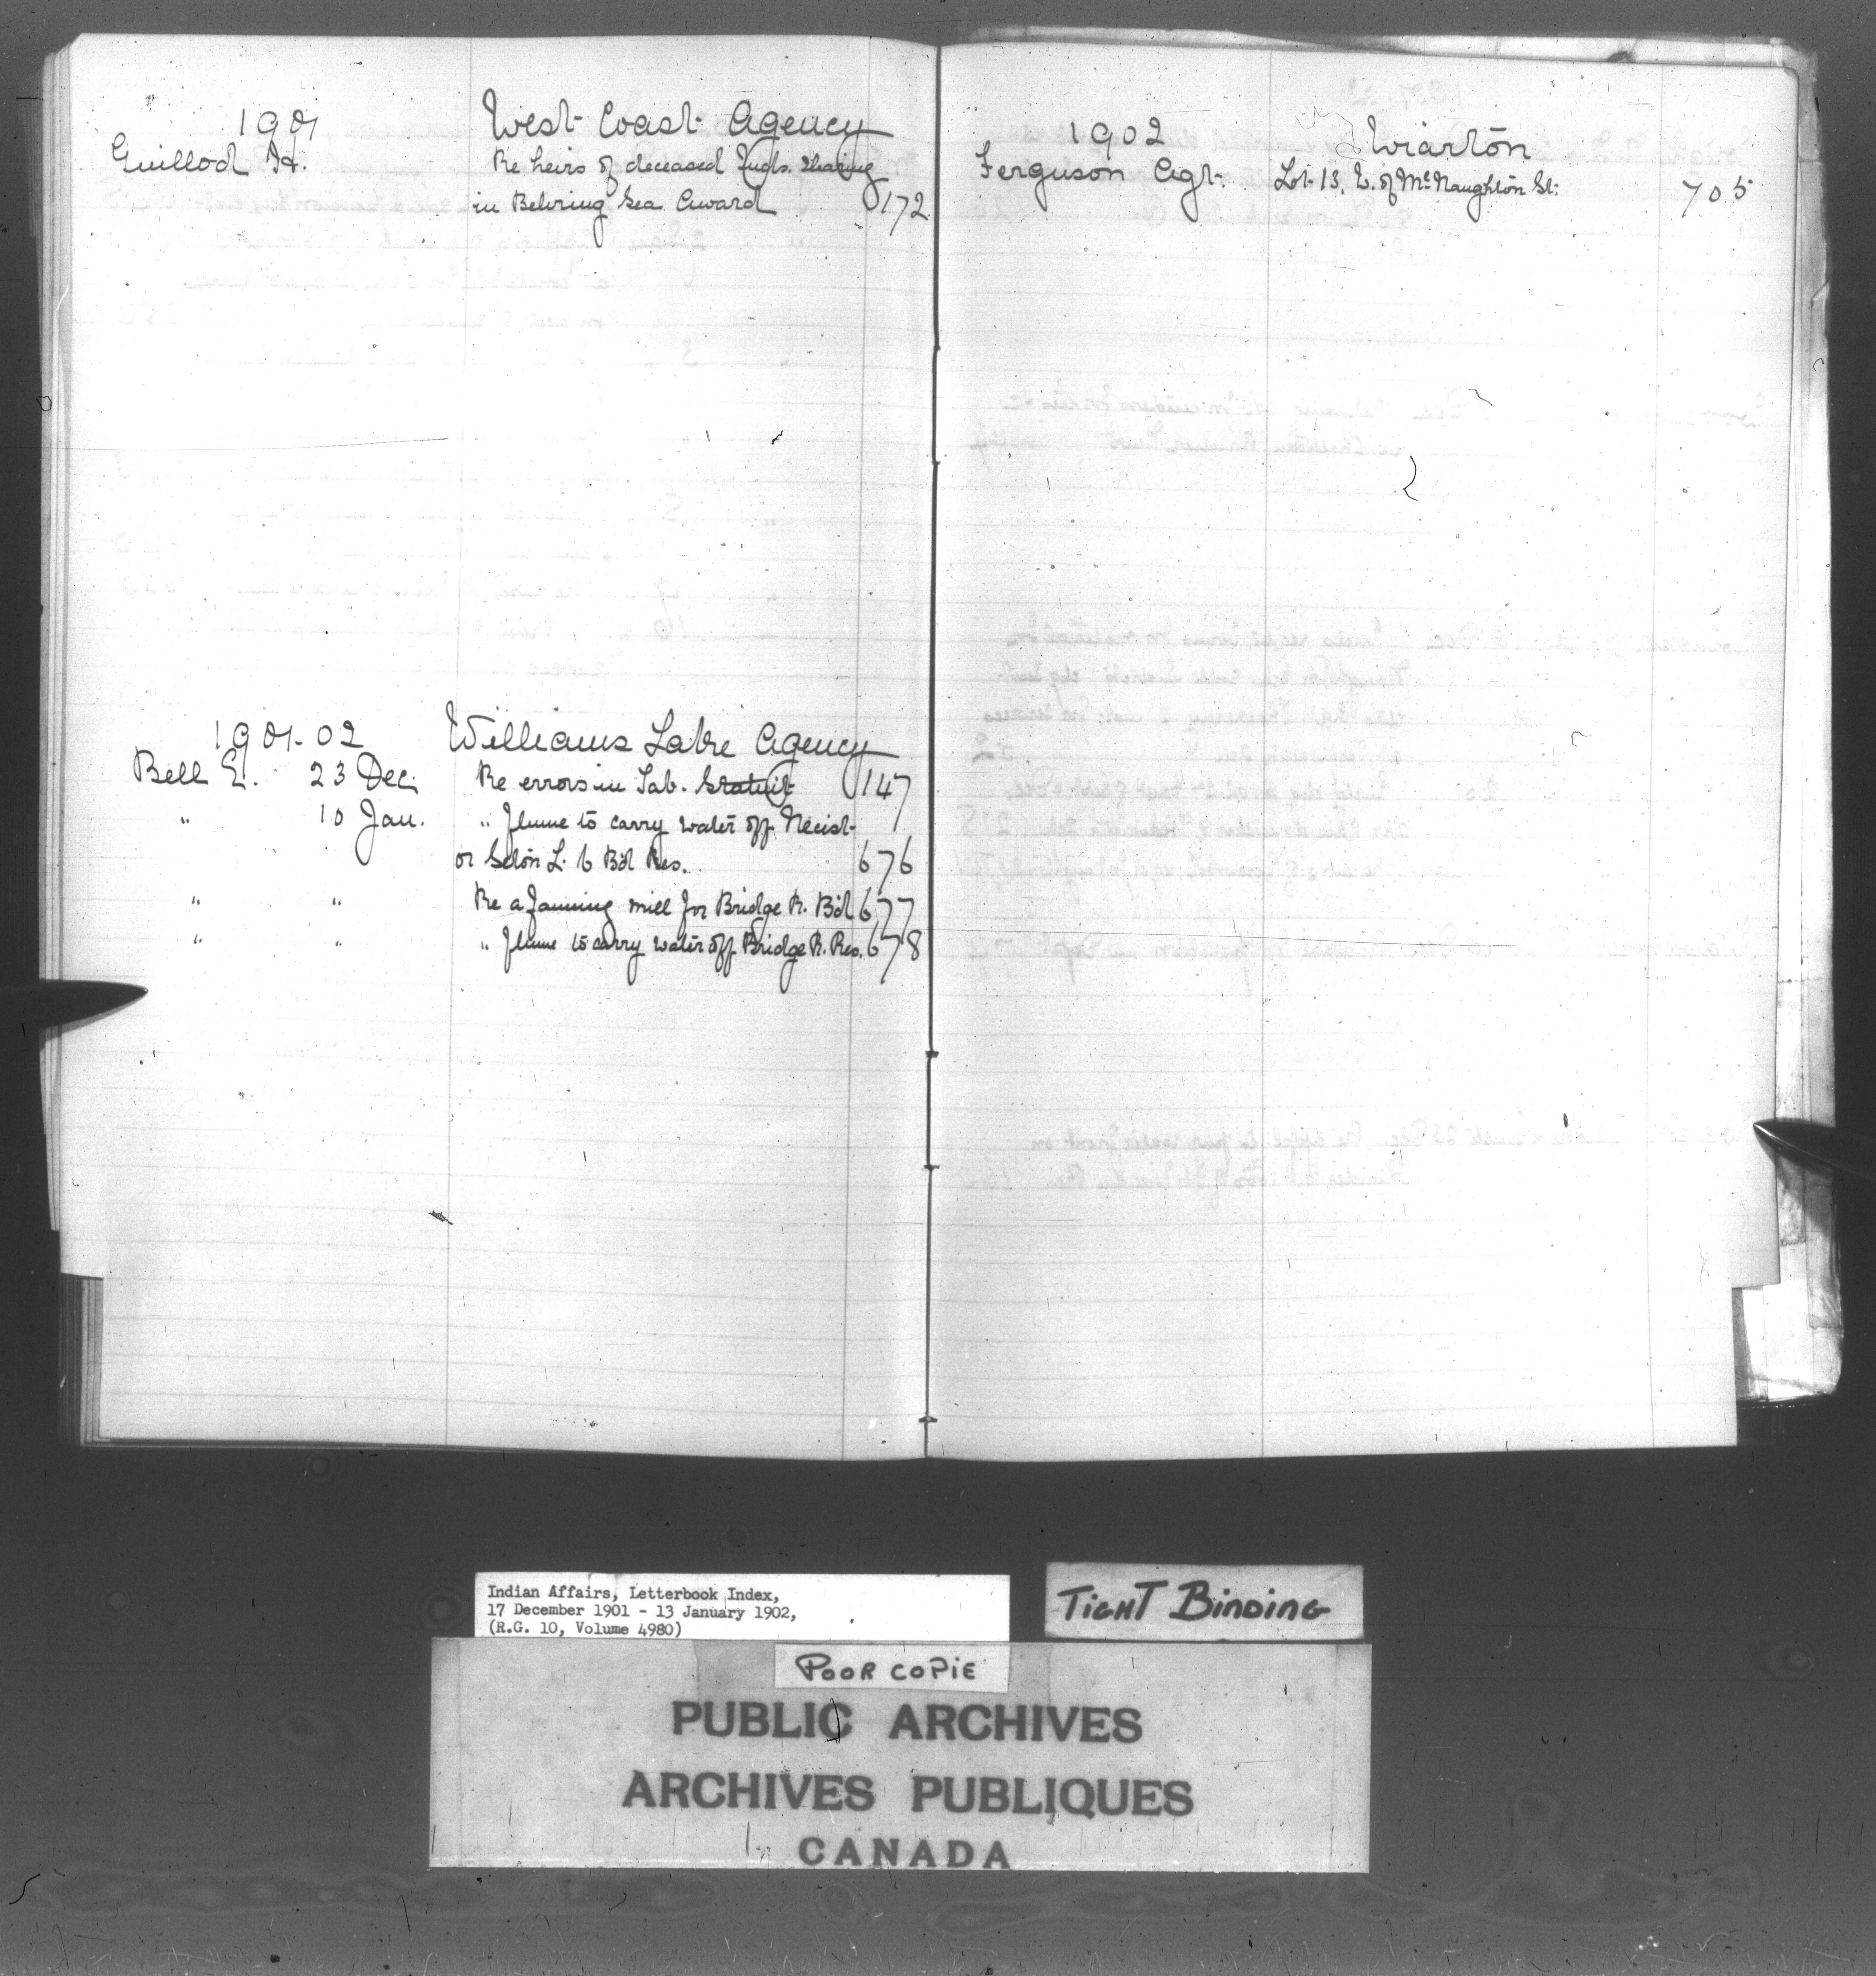 1901 West Coast Agency
Guillod H. Re heirs of deceased Inds. sharing
in Behring Sea Award 172
1901-02 Williams Lake Agency
Bell E. 23 Dec. Re errors in Tab. Statmt 147
" 10 Jan. " flume to carry water off
or Seton L. 6 Bd Res. 676
" " Re a fanning mill for Bridge R. Bd 677
" " " flume to carry water off Bridge R. Res. 678
1902 Wiarton
Ferguson Agt. Lot 13, W. of McNaughton St. 705
Indian Affairs, Letterbook Index,
17 December 1901 - 13 January 1902,
(R.G. 10, Volume 4980)
TIGHT BINDING
POOR COPIE
PUBLIC ARCHIVES
ARCHIVES PUBLIQUES
CANADA